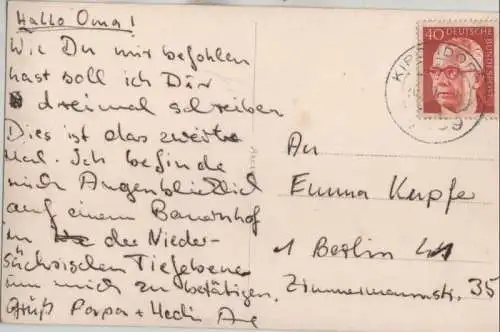 Hallo Oma!
Wie Du mir befohlen
hast soll ich Dir
dreimal schreiben
Dies ist das zweite
Mal. Ich befinde
mich Augenblicklich
auf einem Bauernhof
in der Nieder-
sächsischen Tiefebene
um mich zu betätigen.
Gruß Papa + Hedi
40 DEUTSCHE
BUNDESPOST
An
Emma Kupfer
1 Berlin 41
Zimmermannstr. 35